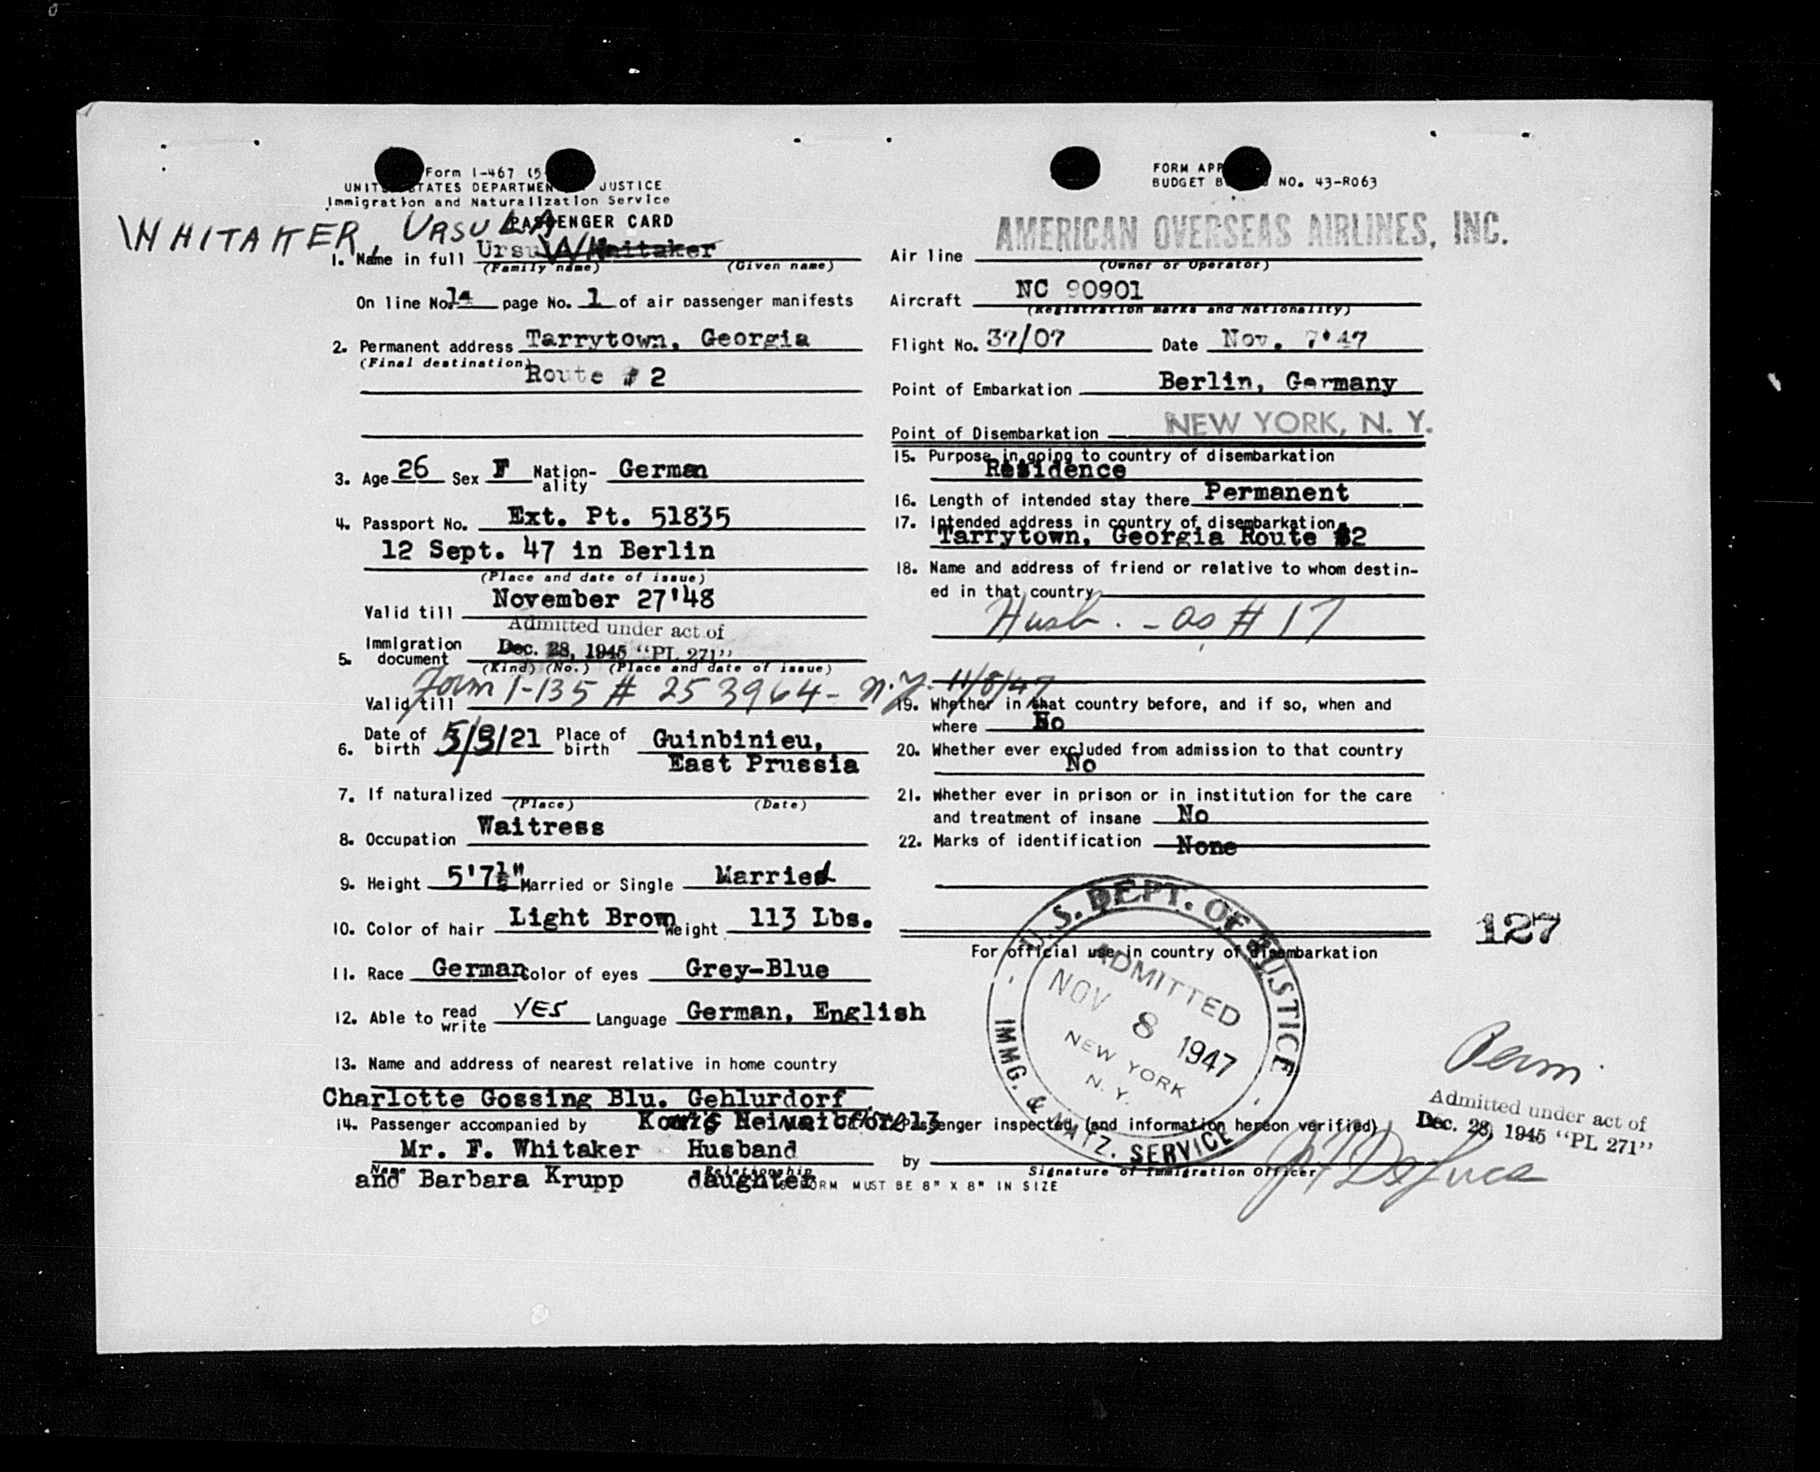 Form I-467 (5-
UNITED STATES DEPARTMENT OF JUSTICE
Immigration and Naturalization Service
PASSENGER CARD
WHITAKER, URSULA
1. Name in full Ursula Whitaker
(Family name) (Given name)
On line No. 14 page No. 1 of air passenger manifests
2. Permanent address Tarrytown, Georgia
(Final destination)
Route # 2
3. Age 26 Sex F Nation-ality German
4. Passport No. Ext. Pt. 51835
12 Sept. 47 in Berlin
(Place and date of issue)
Valid till November 27'48
Admitted under act of
5. Immigration document Dec. 28, 1945 "PL 271"
(Kind) (No.) (Place and date of issue)
Form I-135 # 253964 - N.Y. 11/8/47
Valid till
6. Date of birth 5/8/21 Place of birth Guinbinieu,
East Prussia
7. If naturalized
(Place) (Date)
8. Occupation Waitress
9. Height 5'7½" Married or Single Married
10. Color of hair Light Brown Weight 113 Lbs.
11. Race German Color of eyes Grey-Blue
12. Able to read write YES Language German, English
13. Name and address of nearest relative in home country
Charlotte Gossing Blu. Gehlurdorf
14. Passenger accompanied by
Mr. F. Whitaker Husband
Name Relationship
and Barbara Krupp daughter
FORM MUST BE 8" X 8" IN SIZE
FORM APP
BUDGET B NO. 43-R063
AMERICAN OVERSEAS AIRLINES, INC.
Air line
(Owner or Operator)
Aircraft NC 90901
(Registration marks and Nationality)
Flight No. 37/07 Date Nov. 7'47
Point of Embarkation Berlin, Germany
Point of Disembarkation NEW YORK, N. Y.
15. Purpose in going to country of disembarkation
Residence
16. Length of intended stay there Permanent
17. Intended address in country of disembarkation
Tarrytown, Georgia Route #2
18. Name and address of friend or relative to whom destin-
ed in that country
Husb. - as # 17
19. Whether in that country before, and if so, when and
where No
20. Whether ever excluded from admission to that country
No
21. Whether ever in prison or in institution for the care
and treatment of insane No
22. Marks of identification None
127
For official use in country of disembarkation
U.S. DEPT. OF JUSTICE
ADMITTED
NOV 8 1947
NEW YORK
N. Y.
IMMG. & NATZ. SERVICE
Perm.
Admitted under act of
Dec. 28, 1945 "PL 271"
Passenger inspected (and information hereon verified)
by
Signature of Immigration Officer